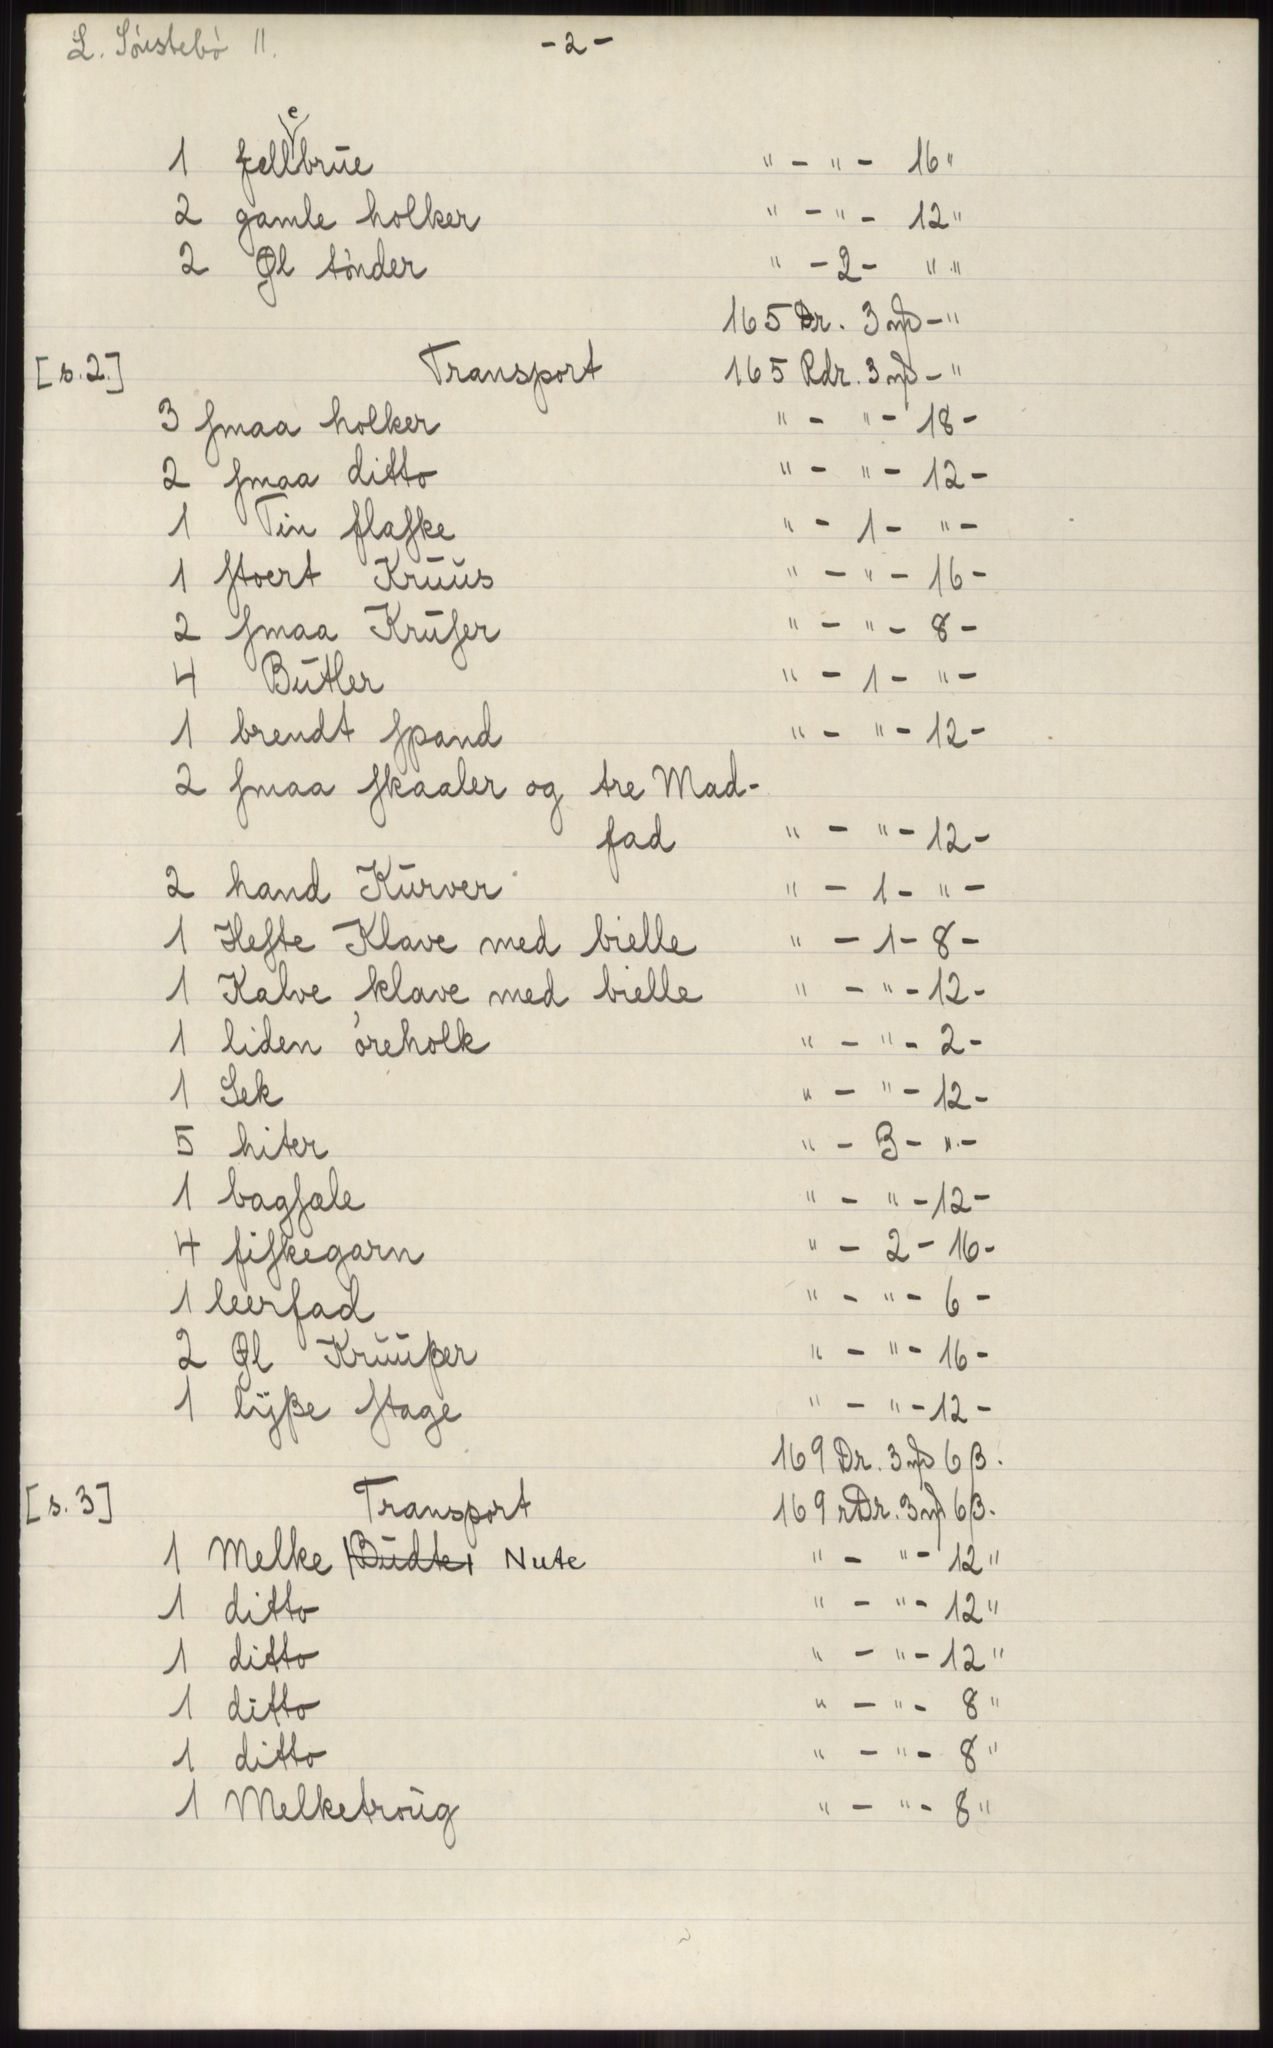 L. Sönstebö 11. - 2 -
1 fellebrūe " - " - 16 "
2 gamle holker " - " - 12 "
2 Øl tönder " - 2 - " "
165 Dr. 3 mþ - "
[s. 2.] Transport 165 Rdr. 3 mþ - "
3 ſmaa holker " - " - 18 -
2 ſmaa ditto " - " - 12 -
1 Tin flaſke " - 1 - " -
1 ſtoert Krūūs " - " - 16 -
2 ſmaa Krūſer " - " - 8 -
4 Būtler " - 1 - " -
1 brendt ſpand " - " - 12 -
2 ſmaa ſkaaler og tre Mad-
fad " - " - 12 -
2 hand Kūrver " - 1 - " -
1 Heſte Klave med bielle " - 1 - 8 -
1 Kalve klave med bielle " - " - 12 -
1 liden öreholk " - " - 2 -
1 Sek " - " - 12 -
5 hiter " - 3 - " -
1 bagſæle " - " - 12 -
4 fiſkegarn " - 2 - 16 -
1 leerfad " - " - 6 -
2 Øl Krūūßer " - " - 16 -
1 lÿße ſtage " - " - 12 -
169 Dr. 3 mþ 6 β.
[s. 3] Transport 169 rDr. 3 mþ 6 β.
1 Melke |Būdte| Nute " - " - 12 "
1 ditto " - " - 12 "
1 ditto " - " - 12 "
1 ditto " - " - 8 "
1 ditto " - " - 8 "
1 Melketroūg " - " - 8 "